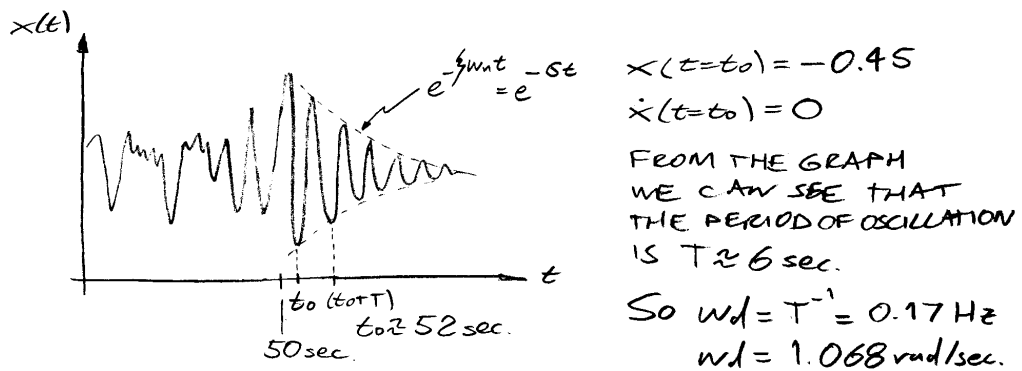 x(t)
e^-ξwnt = e^-σt
t
t₀ (t₀+T)
t₀≈52 sec.
50 sec.
x(t=t₀) = -0.45
ẋ(t=t₀) = 0
FROM THE GRAPH
WE CAN SEE THAT
THE PERIOD OF OSCILLATION
IS T≈6 sec.
So wd = T⁻¹ = 0.17 Hz
wd = 1.068 rad/sec.